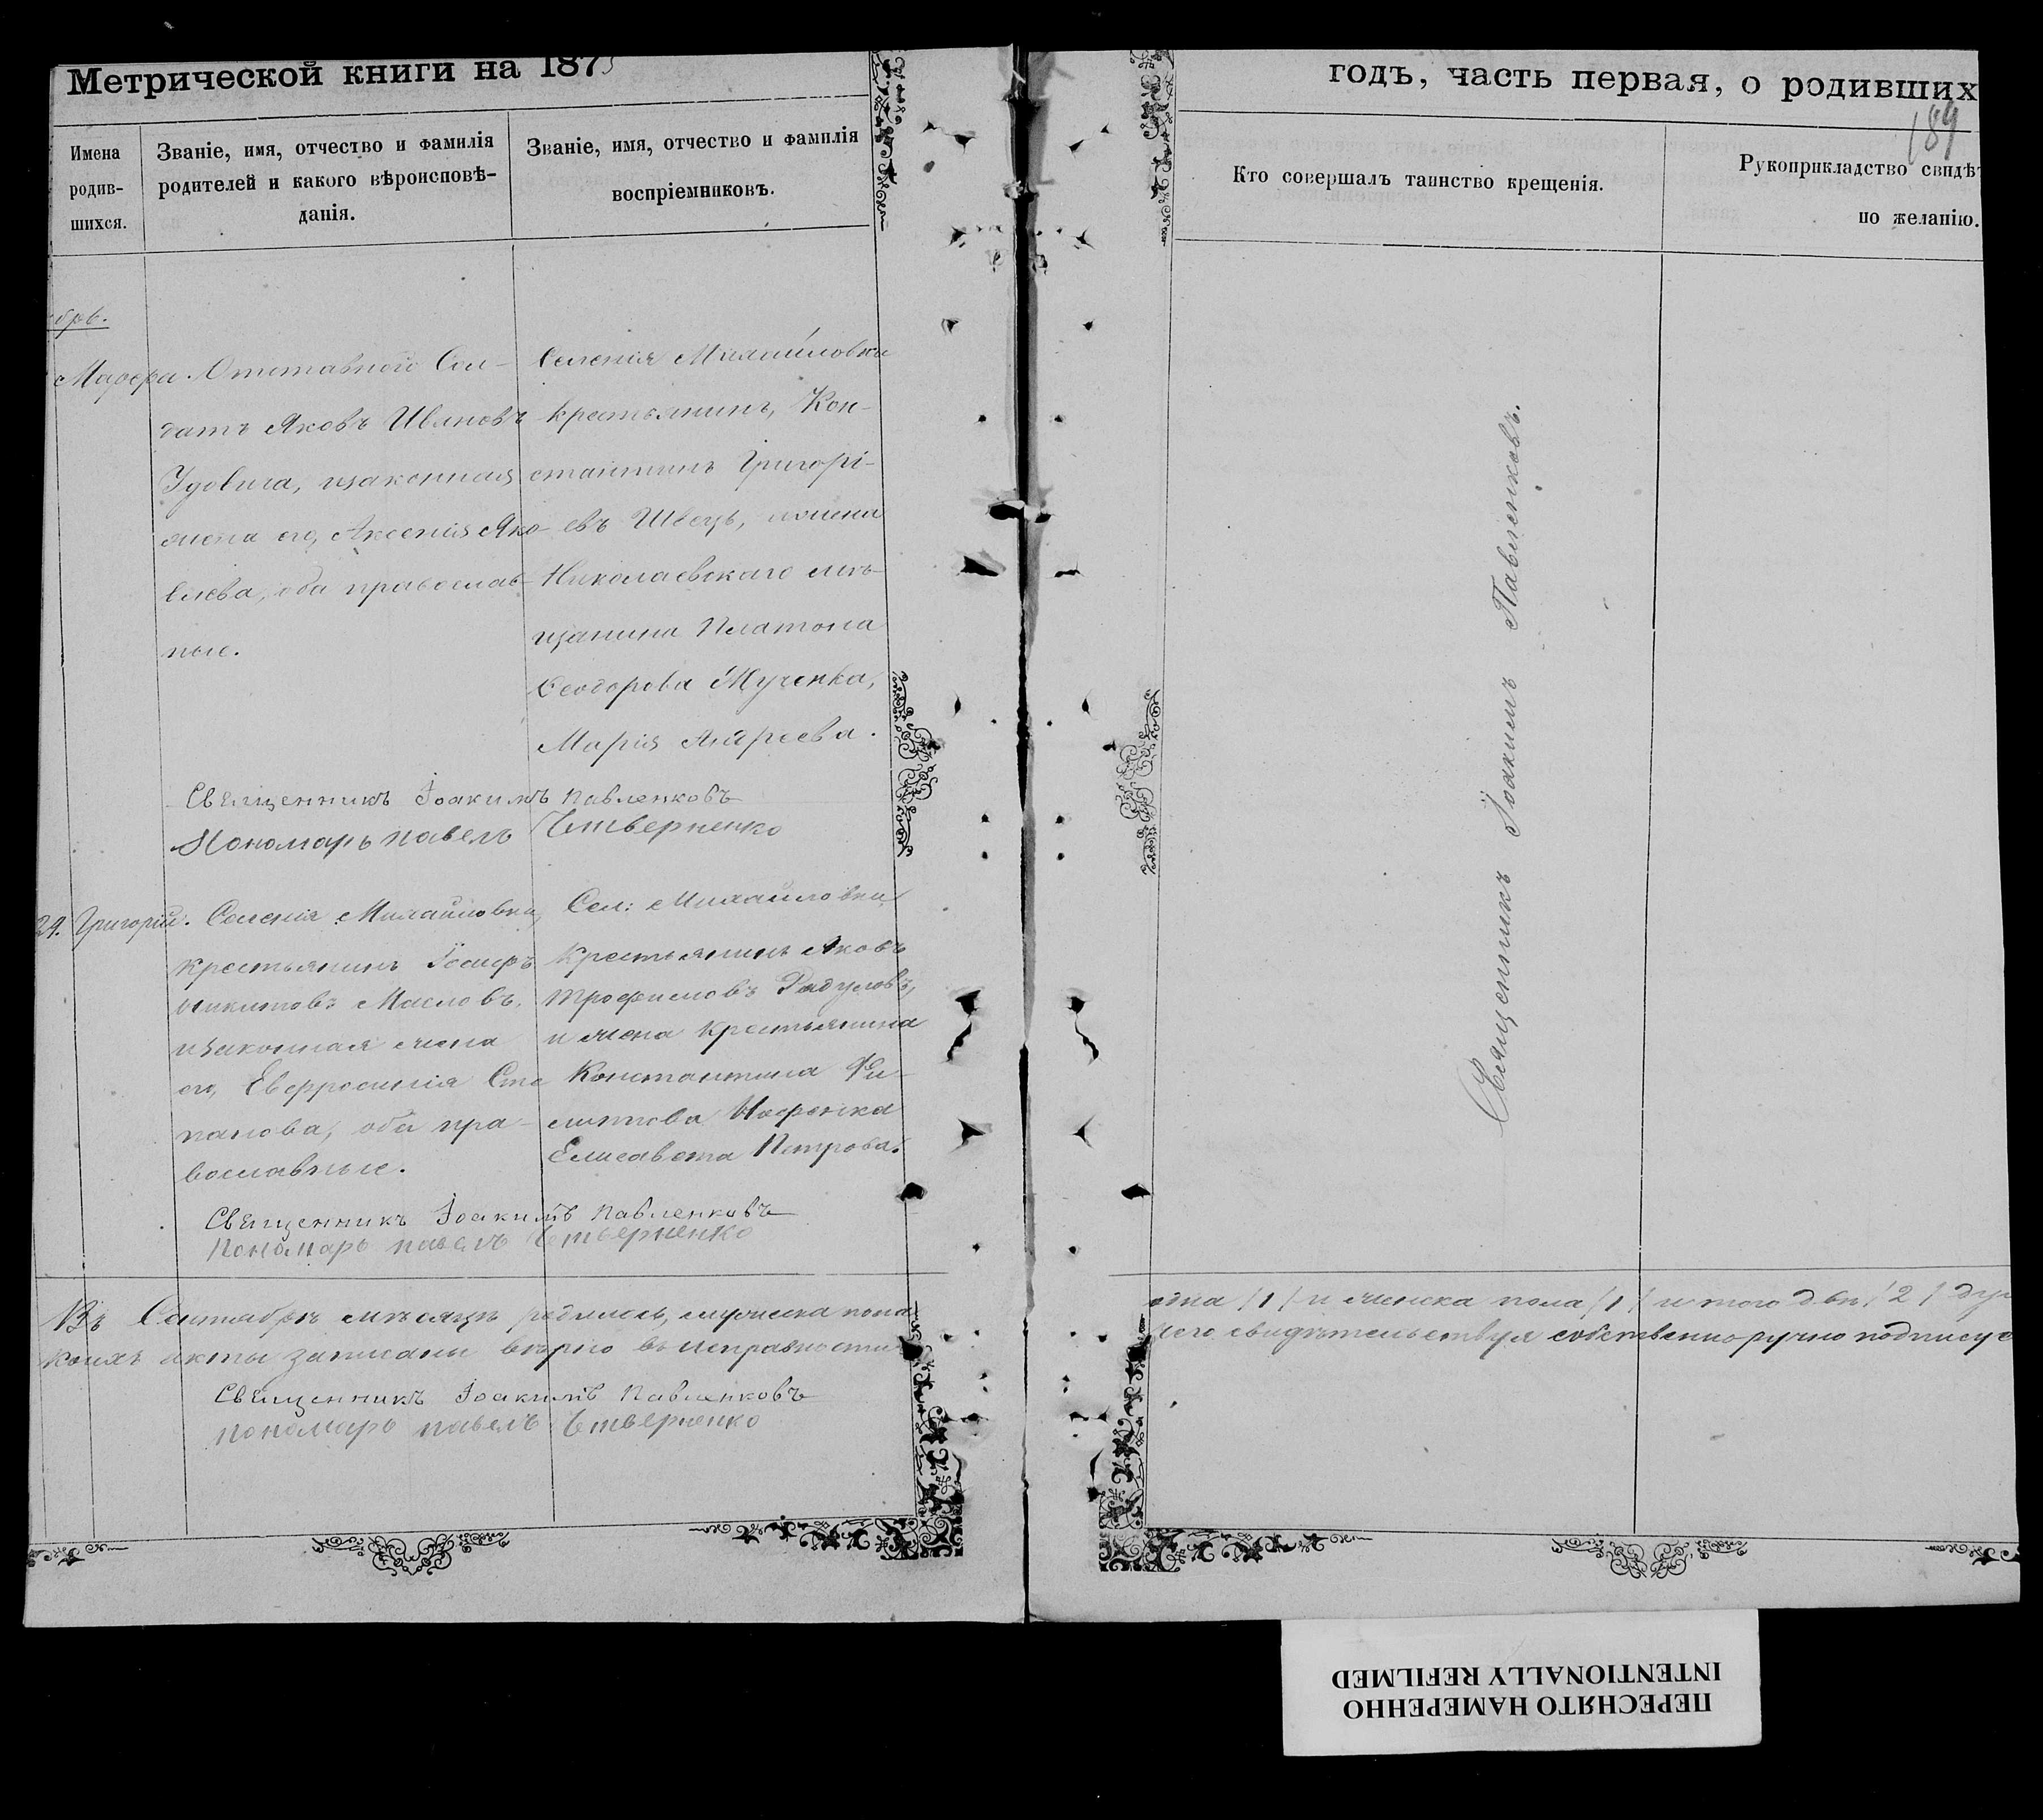 Метрической книги на 1875
Имена родив- шихся.
Званіе, имя, отчество и фамилія родителей и какого вѣроисповѣ- данія.
Званіе, имя, отчество и фамилія воспріемниковъ.
брь.
Отставной Сол-
датъ Яковъ Ивановъ
Удовица, изаконная
жена его, Аксенія Яко-
влева, оба православ-
ные.
Селенія Михайловки
крестьянинъ, Кон-
стантинъ Григорі-
евъ Швецъ, ижена
Николаевскаго мѣ-
щанина Платона
Ѳеодорова
Марія Андреева.
Священникъ Іоакимъ Павленковъ
Пономарь павелъ Четверненко
24. Григорій.
Селенія Михайловки,
крестьянинъ Іосифъ
Никитовъ Масловъ,
изаконная жена
его, Евфросинія Сте
панова, оба пра-
вославные.
Сел: Михайловки
крестьянинъ Яковъ
Трофимовъ
и жена крестьянина
Константина Фи-
липпова
Елисавета Петрова.
Священникъ Іоакимъ Павленковъ
Пономарь павелъ Четверненко
Въ Сентябрѣ мѣсяцѣ родилось, мужеска пола
коихъ акты записаны вѣрно въ исправности
Священникъ Іоакимъ Павленковъ
пономарь павелъ Четверненко
годъ, часть первая, о родивших
189
Кто совершалъ таинство крещенія.
Рукоприкладство свидѣт
по желанію.
Священникъ Іоакимъ Павленковъ.
одна /1/ и женска пола /1/ итого двѣ /2/ ду
чего свидѣтельствуя собственноручно подпису
ПЕРЕСНЯТО НАМЕРЕННО
INTENTIONALLY REFILMED